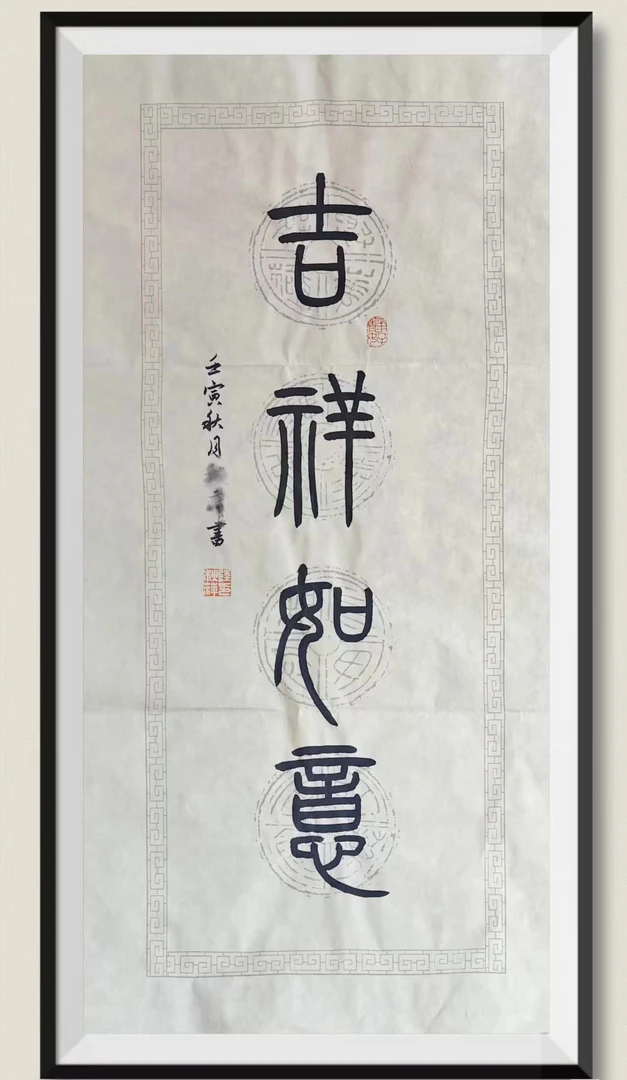 吉祥如意
壬寅秋月
書